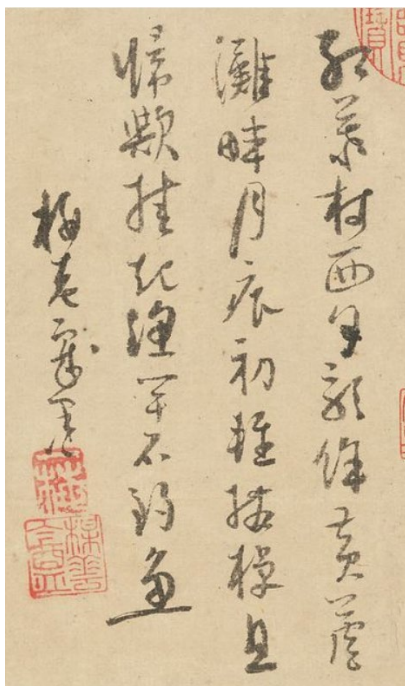 紅葉村西夕影餘黃蘆
灘畔月痕初輕撥棹且
歸歟挂起漁竿不釣魚
梅老戲墨